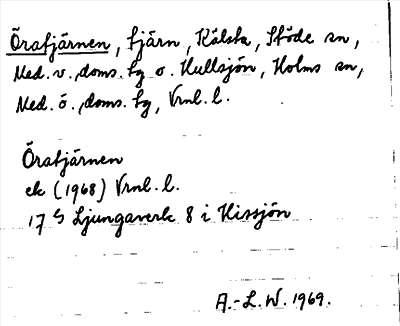 Öratjärnen, tjärn, Kälsta, Stöde sn,
Med. v. doms. tg o. Hullsjön, Holms sn,
Med. ö. doms. tg, Vrnl. l.
Öratjärnen
ek (1968) Vrnl. l.
17 G Ljungaverk 8 i Hissjön
A.-L. W. 1969.